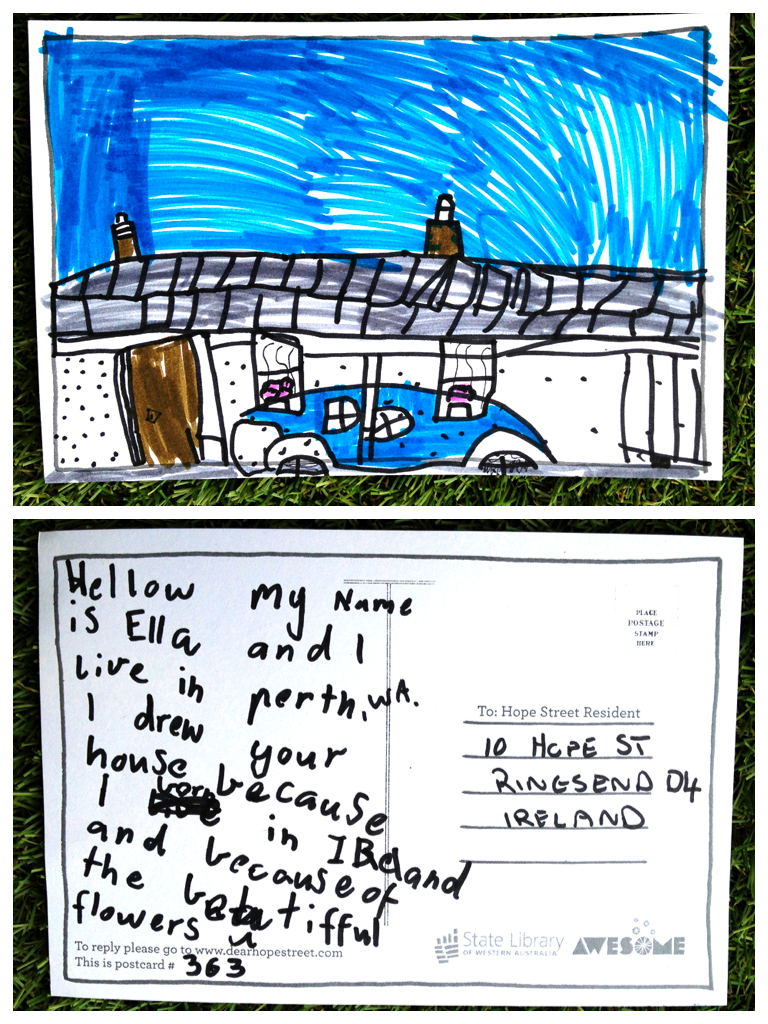 Hellow my Name
is Ella and I
live in perth, WA.
I drew your
house because
I born in IReland
and because of
the beautifful
flowers
To reply please go to www.dearhopestreet.com
This is postcard # 363
PLACE
POSTAGE
STAMP
HERE
To: Hope Street Resident
10 HOPE ST
RINGSEND D4
IRELAND
State Library
OF WESTERN AUSTRALIA
AWESOME